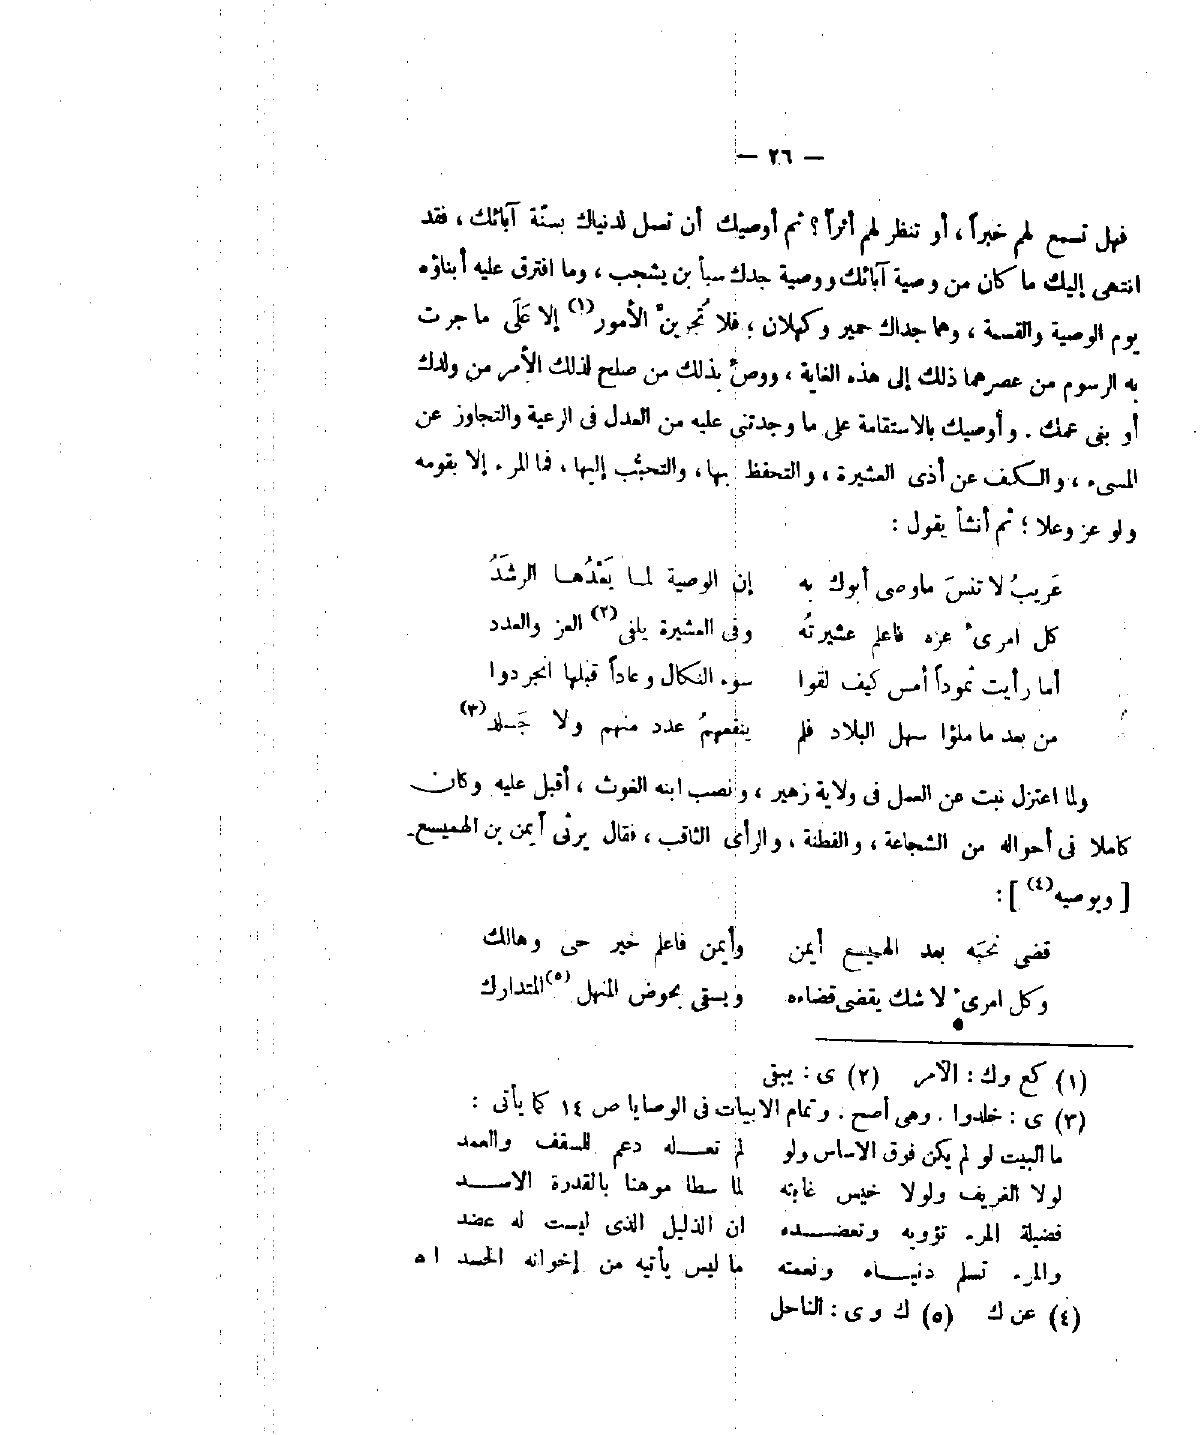 — ٢٦ —
فهل تسمع لهم خبراً ، أو تنظر لهم أثراً ؟ ثم أوصيك أن تسل لدنياك بسنّة آبائك ، فقد
انتهى إليك ما كان من وصية آبائك ووصية جدك سبأ بن يشجب ، وما افترق عليه أبناؤه
يوم الوصية والقسمة ، وهما جداك حمير وكهلان ؛ فلا تُجرينّ الأمور(١) إلا عَلَى ما جرت
به الرسوم من عصرهما ذلك إلى هذه الغاية ، ووصّ بذلك من صلح لذلك الأمر من ولدك
أو بنى عمك . وأوصيك بالاستقامة على ما وجدتنى عليه من العدل فى الرعية والتجاوز عن
المسىء ، والكف عن أذى العشيرة ، والتحفظ بها ، والتحبُّب إليها ، فما المرء إلا بقومه
ولو عز وعلا ؛ ثم أنشأ يقول :
عَريبُ لا تنسَ ماوصى أبوك به إن الوصية لمـا يَعْدُهـا الرشَدُ
كل امرىء عزه فاعلم عشيرتُه وفى العشيرة يلفى(٢) العز والعدد
أما رأيت ثموداً أمس كيف لقوا سوء النكال وعاداً قبلها انجردوا
من بعد ما ملؤا سهل البلاد فلم ينفعهمُ عدد منهم ولا جَـلد(٣)
ولما اعتزل نبت عن العمل فى ولاية زهير ، ونصب ابنه الغوث ، أقبل عليه وكان
كاملا فى أحواله من الشجاعة ، والفطنة ، والرأى الثاقب ، فقال يرثى أيمن بن الهميسع
[ ويوصيه(٤) ] :
قضى نحبَه بعد الهميسع أيمن وأيمن فاعلم خير حى وهالك
وكل امرىء لا شك يقضى قضاءه ويسقى بحوض المنهل(٥) المتدارك
(١) كع وك : الأمر (٢) ى : يبقى
(٣) ى : خلدوا . وهى أصح . وتمام الابيات فى الوصايا ص ١٤ كما يأتى :
ما البيت لو لم يكن فوق الاساس ولو لم تعـــله دعم للسقف والعمد
لولا الغريف ولولا خيس غابته لما سطا موهنا بالقدرة الاســـد
فضيلة المرء تؤويه وتعضــــده ان الذليل الذى ليست له عضد
والمرء تسلم دنيــاه ونعمته ما ليس يأتيه من إخوانه الحسد اه
(٤) عن ك (٥) ك وى : الناحل